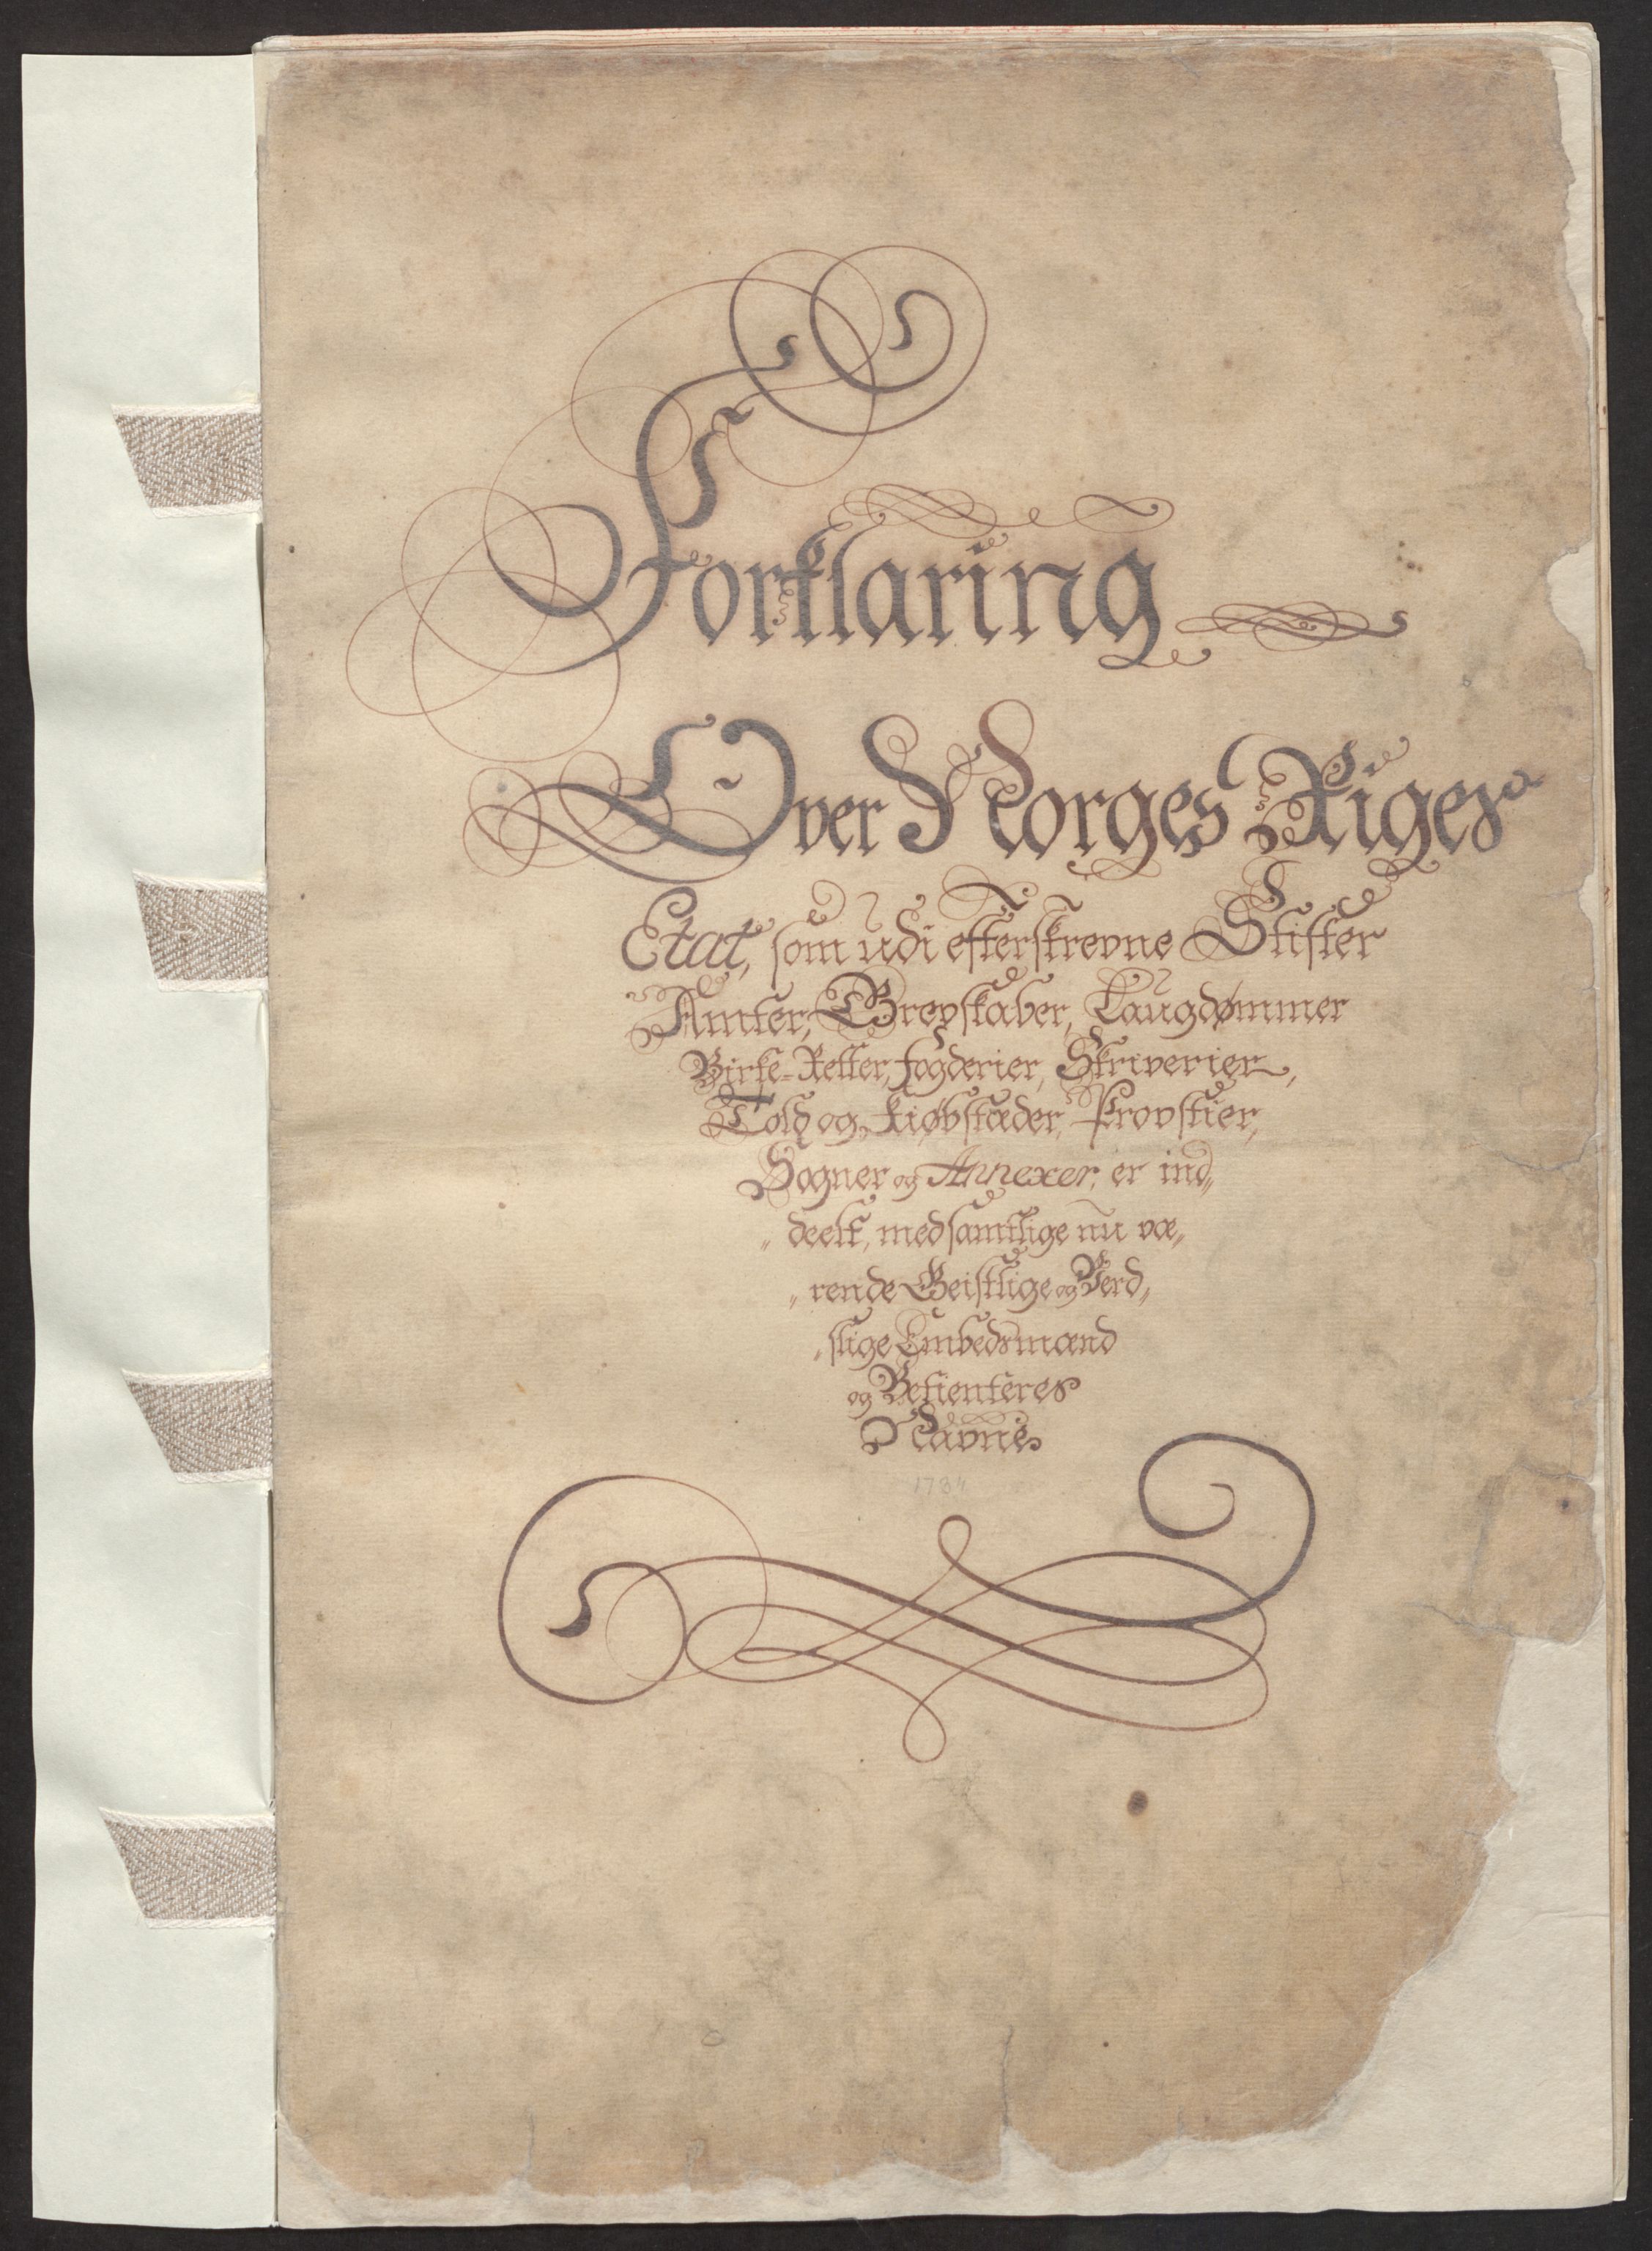 Forklaring
Over Norges Riges
Etat, som udi efterskrevne Stifter
Amter, Grevskaber, Laugdømmer
Birke-Retter, fogderier, Skriverier,
Told og Kiøbstæder, Provstier,
Sogner og Annexer, er ind„
„ deelt, med samtlige nu væ„
„ rende Geistlige og Verd„
„ slige Embedsmænd
og Betienteres
Navne
1734